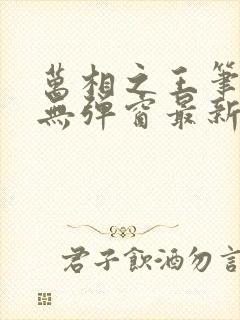 萬相之王筆
無彈窗最新
君子飲酒勿言